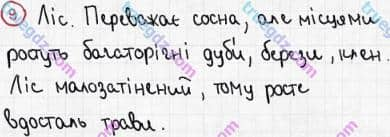 9 Ліс. Переважає сосна, але місцями
ростуть багаторічні дуби, берези, клен.
Ліс малозатінений, тому росте
вдосталь трави.